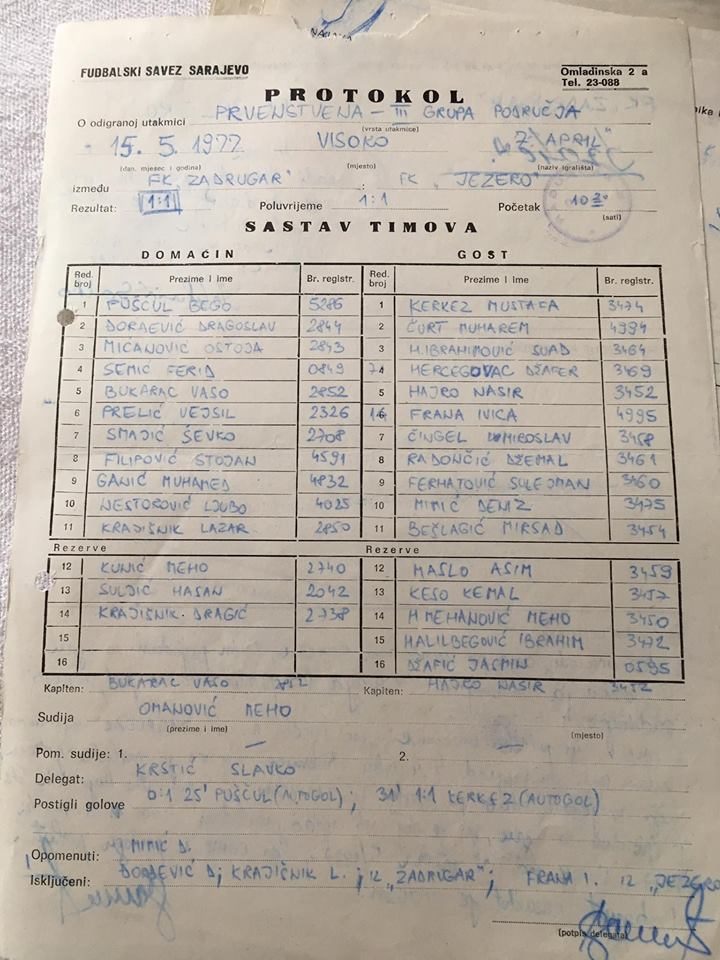 FUDBALSKI SAVEZ SARAJEVO
Omladinska 2 a
Tel. 23-088
PROTOKOL
O odigranoj utakmici PRVENSTVENA – III GRUPA PODRUČJA
(vrsta utakmice)
15. 5. 1977 VISOKO APRIL"
(dan, mjesec i godina) (mjesto) (naziv igrališta)
između FK „ZADRUGAR" : FK „JEZERO"
Rezultat: 1:1 Poluvrijeme 1:1 Početak 10 30
(sati)
SASTAV TIMOVA
DOMAĆIN GOST
Red. broj Prezime i ime Br. registr. Red. broj Prezime i ime Br. registr.
1 PUŠČUL BEGO 5286 1 KERKEZ MUSTAFA 3474
2 ĐORĐEVIĆ DRAGOSLAV 2844 2 ČURT MUHAREM 4994
3 MIĆANOVIĆ OSTOJA 2843 3 H.IBRAHIMOVIĆ SUAD 3464
4 SEMIĆ FERID 0849 4 HERCEGOVAC DŽAFER 3469
5 BUKARAC VASO 2852 5 HAJRO NASIR 3452
6 PRELIĆ VEJSIL 2326 FRANA IVICA 4995
7 SMAJIĆ ŠEVKO 2708 7 ČINGEL MIROSLAV 3458
8 FILIPOVIĆ STOJAN 4591 8 RADONČIĆ DŽEMAL 3461
9 GANIĆ MUHAMED 4832 9 FERHATOVIĆ SULEJMAN 3460
10 NESTOROVIĆ LJUBO 4025 10 MIMIĆ DENIZ 3475
11 KRAJIŠNIK LAZAR 2850 11 BEŠLAGIĆ MIRSAD 3454
Rezerve Rezerve
12 KUNIĆ MEHO 2740 12 MASLO ASIM 3459
13 SULJIĆ HASAN 2042 13 KESO KEMAL 3457
14 KRAJIŠNIK DRAGIĆ 2738 14 H MEHANOVIĆ MEHO 3450
15 15 HALILBEGOVIĆ IBRAHIM 3472
16 16 DŽAFIĆ JASMIN 0595
Kapiten: BUKARAC VASO 2852 Kapiten: HAJRO NASIR 3452
Sudija OMANOVIĆ MEHO
(prezime i ime) (mjesto)
Pom. sudije: 1. — 2. —
Delegat: KRSTIĆ SLAVKO
Postigli golove 0:1 25' PUŠČUL (AUTOGOL); 31' 1:1 KERKEZ (AUTOGOL)
Opomenuti: MIMIĆ D.
Isključeni: ĐORĐEVIĆ D; KRAJIČNIK L.; IZ „ZADRUGAR"; FRANA I. IZ „JEZERO
(potpis delegata)